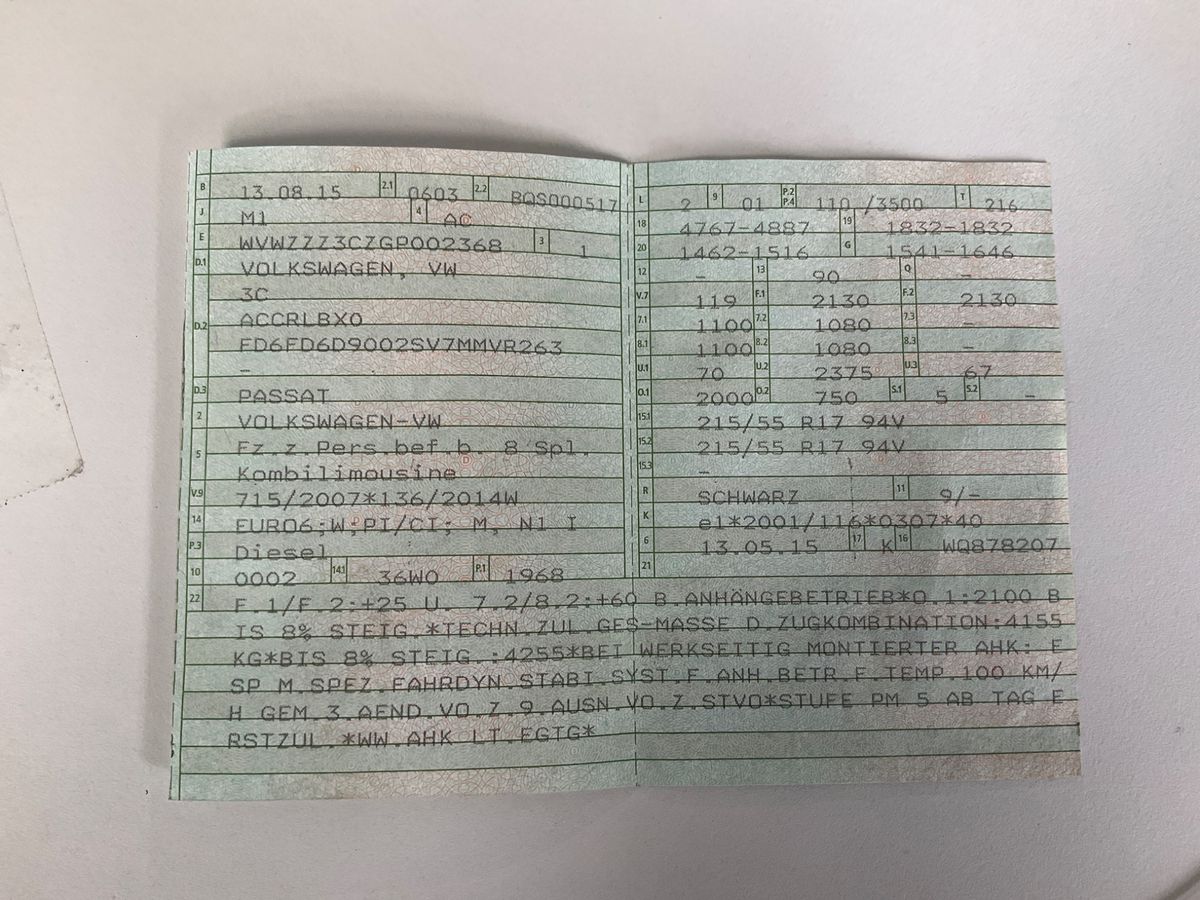 B 13.08.15 2.1 0603 2.2 BQS000517
J M1 4 AC
E WVWZZZ3CZGP002368 3 1
D.1 VOLKSWAGEN, VW
3C
D.2 ACCRLBX0
FD6FD6D9002SV7MMVR263
–
D.3 PASSAT
2 VOLKSWAGEN-VW
5 Fz.z.Pers.bef.b. 8 Spl.
Kombilimousine
V.9 715/2007*136/2014W
14 EURO6;W;PI/CI; M, N1 I
P.3 Diesel
10 0002 14.1 36W0 P.1 1968
L 2 9 01 P.2 P.4 110 /3500 T 216
18 4767-4887 19 1832-1832
20 1462-1516 G 1541-1646
12 – 13 90 Q –
V.7 119 F.1 2130 F.2 2130
7.1 1100 7.2 1080 7.3 –
8.1 1100 8.2 1080 8.3 –
U.1 70 U.2 2375 U.3 67
O.1 2000 O.2 750 S.1 5 S.2 –
15.1 215/55 R17 94V
15.2 215/55 R17 94V
15.3 –
R SCHWARZ 11 9/–
K e1*2001/116*0307*40
6 13.05.15 17 K 16 WQ878207
21
22 F.1/F.2:+25 U. 7.2/8.2:+60 B.ANHÄNGEBETRIEB*O.1:2100 B
IS 8% STEIG.*TECHN.ZUL.GES-MASSE D.ZUGKOMBINATION:4155
KG*BIS 8% STEIG.:4255*BEI WERKSEITIG MONTIERTER AHK: E
SP M.SPEZ.FAHRDYN.STABI SYST.F.ANH.BETR.F.TEMP 100 KM/
H GEM.3.AEND.VO.Z.9.AUSN.VO.Z.STVO*STUFE PM 5 AB TAG E
RSTZUL.*WW.AHK LT.EGTG*